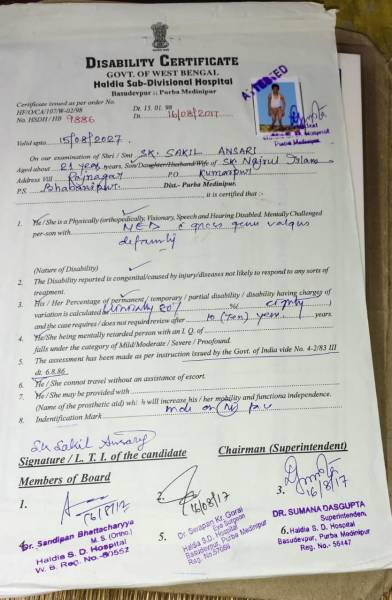 DISABILITY CERTIFICATE
GOVT. OF WEST BENGAL
Haldia Sub-Divisional Hospital
Basudevpur :: Purba Medinipur
Certificate issued as per order No.
HF/O/CA/107/W-02/98 Dt. 13. 01. 98
No. HSDH / HB 9886 Dt. 16/08/2017
ATTESTED
Haldia S. D. Hospital
Purba Medinipur
Valid upto 15/08/2027.
On our examination of Shri / Smt SK. SAKIL ANSARI
Aged about 21 years, Son/Daughter/Husband/Wife of SK. Najrul Islam
Address Vill Rajnagar P.O. Kumarpur
P.S. Bhabanipur. Dist.- Purba Medinipur.
, it is certified :-
1. He/She is a Physically (orthopedically, Visionary, Speech and Hearing Disabled. Mentally Challenged
per-son with gross genu valgus
deformity
(Nature of Disability)
2. The Disability reported is congenital/caused by injury/diseases not likely to respond to any sorts of
treatment.
3. His / Her Percentage of permanent / temporary / partial disability / disability having charges of
variation is calculated Clinically 80% %( eighty )
and the case requires / does not require review after 10 (Ten) years. years.
4. He/She being mentally retarded person with an I. Q. of
falls under the category of Mild/Moderate / Severe / Proofound.
5. The assessment has been made as per instruction issued by the Govt. of India vide No. 4-2/83 III
dt. 6.8.86
6. He / She connot travel without an assistance of escort.
7. He / She may be provided with
(Name of the prosthetic aid) which will increase his / her mobility and functiona independence.
8. Indentification Mark mole on (Rt)
Sk Sakil Ansary
Signature / L. T. I. of the candidate Chairman (Superintendent)
Members of Board
1. 2. 3.
16/8/17 16/08/17 16/8/17
4. 5. 6.
Dr. Sandipan Bhattacharyya
M. S. (Ortho.)
Haldia S. D. Hospital
W. B. Reg. No.-60552
Dr. Swapan Kr. Gorai
Eye Surgeon
Haldia S.D. Hospital
Basudevpur, Purba Medinipur
DR. SUMANA DASGUPTA
Superintendent,
Haldia S. D. Hospital
Basudevpur, Purba Medinipur
Reg. No.- 55447